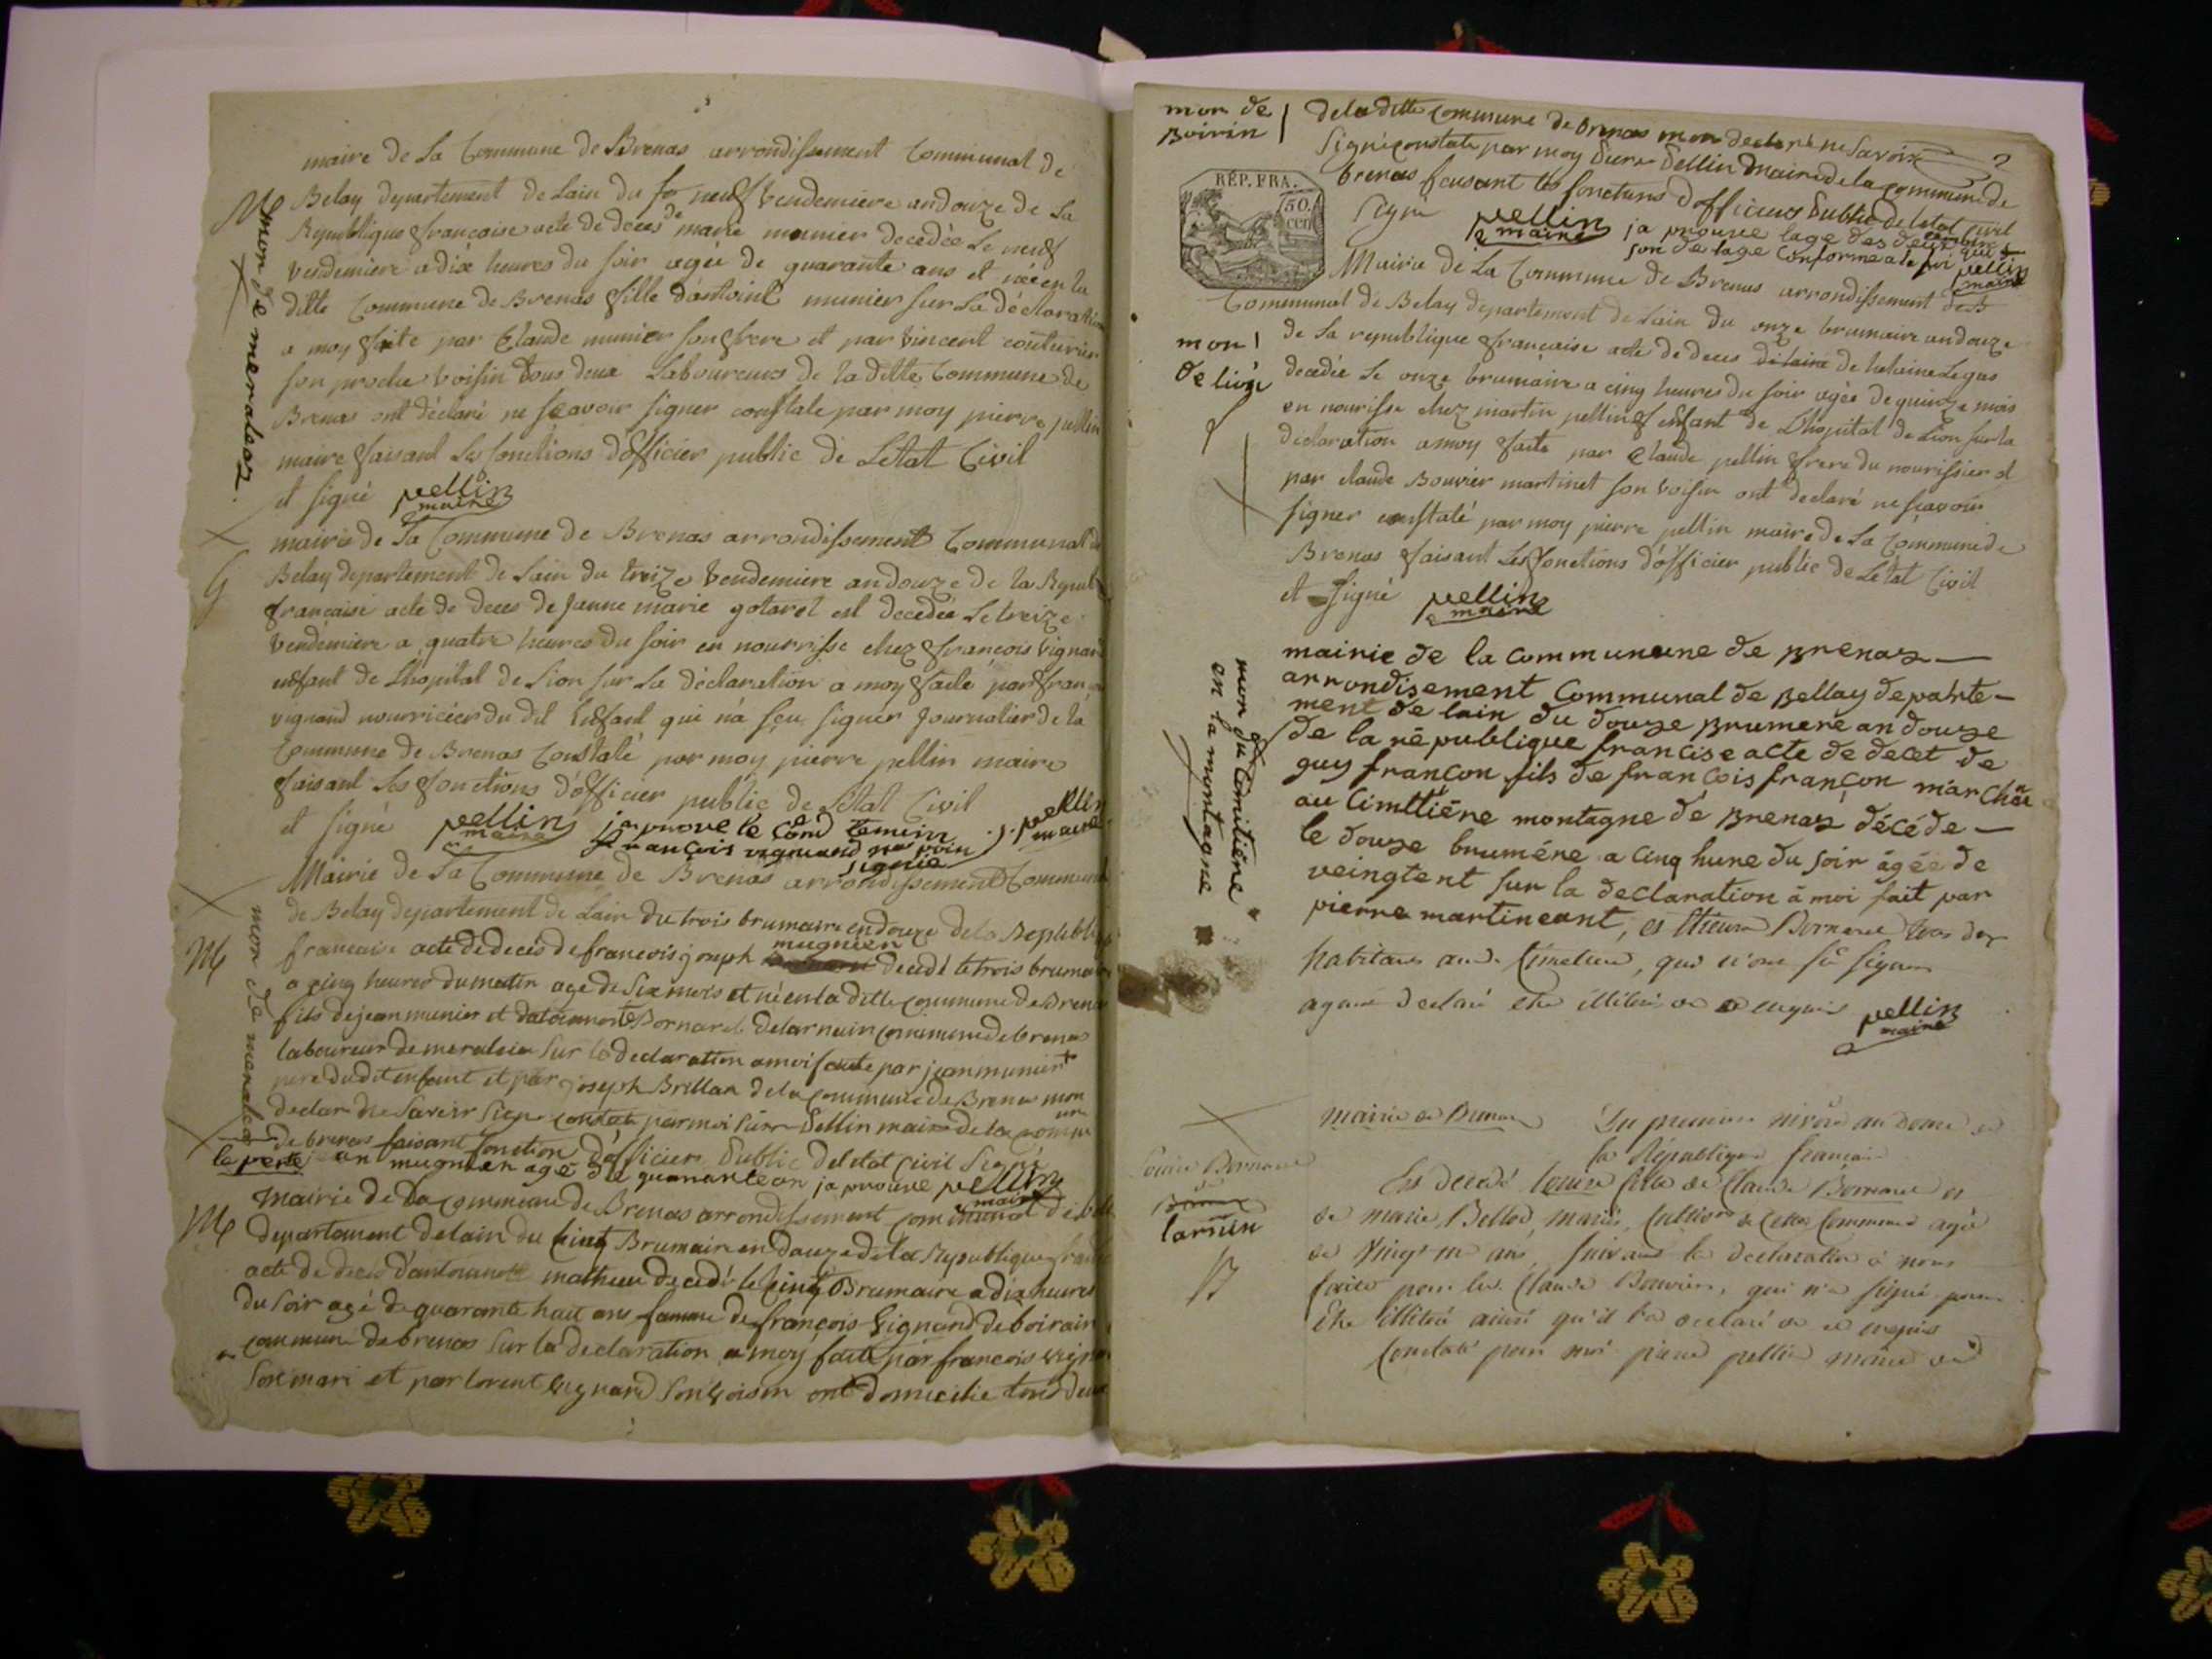 maire de La Commune de Brenas arrondissement Communal de
Belay departement de Lain du neuf Vendemiere an douze de La
Republique francaise acte de deces de marie munier decedée Le neuf
Vendemiere a dix heures du soir agée de quarante ans et née en la
ditte Commune de Brenas fille d'antoine munier sur La déclaration
a moy faite par Claude munier son frere et par Vincent couturier
son proche Voisin tous deux Laboureurs de la ditte Commune de
Brenas ont déclaré ne scavoir signer constate par moy pierre pellin
maire faisant Les fonctions d'officier public de Letat Civil
et signé pellin
maire
mon de meraleaz
mairie de La Commune de Brenas arrondissement Communal de
Belay departement de Lain du treize Vendemiere an douze de la Republ
française acte de deces de Janne marie gotaret est decedée Le treize
Vendemiere a quatre heures du soir en nourrisse chez françois Vignand
enfant de Lhopital de Lion sur La déclaration a moy faite par fran
vignand nourricier du dit Enfant qui n'a sçu signer Journalier de la
Commune de Brenas Constaté par moy pierre pellin maire
faisant Les fonctions d'officier public de Letat Civil
et signé pellin maire
françois vignand
signie
pellin maire
Mairie de La Commune de Brenas arrondissement Communal
de Belay departement de Lain du trois brumaire en douze de la Republi
francaise acte de deces de francois joseph mugnier decedé le trois brumaire
a cinq heures du matin agé de six mois et né en la ditte commune de Brenas
fils de jean munier et Bornard de larnuin commune de brenas
laboureur de meraleaz sur la declaration a moi faite par jean munier
pere dudit enfant et par joseph Brillan de la commune de Brenas mon
declare ne savoir signe constate par moi piere Pellin maire de la commune
de brenas faisant fonction d'officier Public de letat civil signé
le perre jan mugnier age de quarante an ja prouve pellin
maire
mon de meraleaz
Mairie de La commune de Brenas arrondissement communal de bela
departement de lain du cinq Brumaire en douze de la Republique franc
acte de deces d'antoinette mathieu decedé le cinq Brumaire a dix heures
du soir agé de quarante huit ans famme de françois Vignand de boirain
commune de brenas sur la declaration a moy faite par francois vignan
son mari et par lorent vignand son voisin ont domicilie tous deux
mon de
Boirin
de la ditte commune de brenas mon declaré ne savoir
signé constate par moy Piere Pellin maire de la commune de
brenas faisant les fonctions d'officier Public de letat civil
signé pellin maire ja prouve lage des deux temoins qui
son de lage conforme a la loi pellin
maire
RÉP. FRA.
50
cen
Mairie de La Commune de Brenas arrondissement
Communal de Belay departement de Lain du onze brumaire an douze
de La republique française acte de deces de laine de helaine Legas
decedée Le onze brumaire a cinq heures du soir agée de quinze mois
en nourisse chez martin pellin enfant de Lhopital de Lion sur la
déclaration a moy faite par Claude pellin frere du nourissier et
par claude Bouvier martinet son voisin ont declaré ne sçavoir
signer constaté par moy pierre pellin maire de La Commune de
Brenas faisant Les fonctions d'officier public de Letat Civil
et signé pellin
maire
mon
de lion
mairie de la communune de Brenaz
arrondisement communal de Bellay departe-
ment de lain du douze Brumere an douze
de la république francise acte de decet de
guy françon fils de françois françon marchan
au cimttiére montagne de Brenaz décéde
le douze bruméne a cinq hune du soir âgée de
veingtent sur la declaration à moi fait par
pierre martineant, et Bornarel tous deux
habitans au Cimetiere, qui n'ont sû signer
ayant declaré etre illitérés de ce enquis pellin
maire
mon du Cimitiére
on la montagne
mairie de Brenas Du premier nivôse an douze de
la République française
Est decedé Louise fille de Claude Bornarel et
de marie Bellod, mariés, cultiv de cette Commune agée
de vingt un ans, suivant la declaration à nous
faite par led. Claude Bouvier, qui n'a signé pour
être illitéré ainsi qu'il l'a declaré de ce enquis
Constaté par moi pierre pellin maire de
Louise Bornarel
de
larnuin